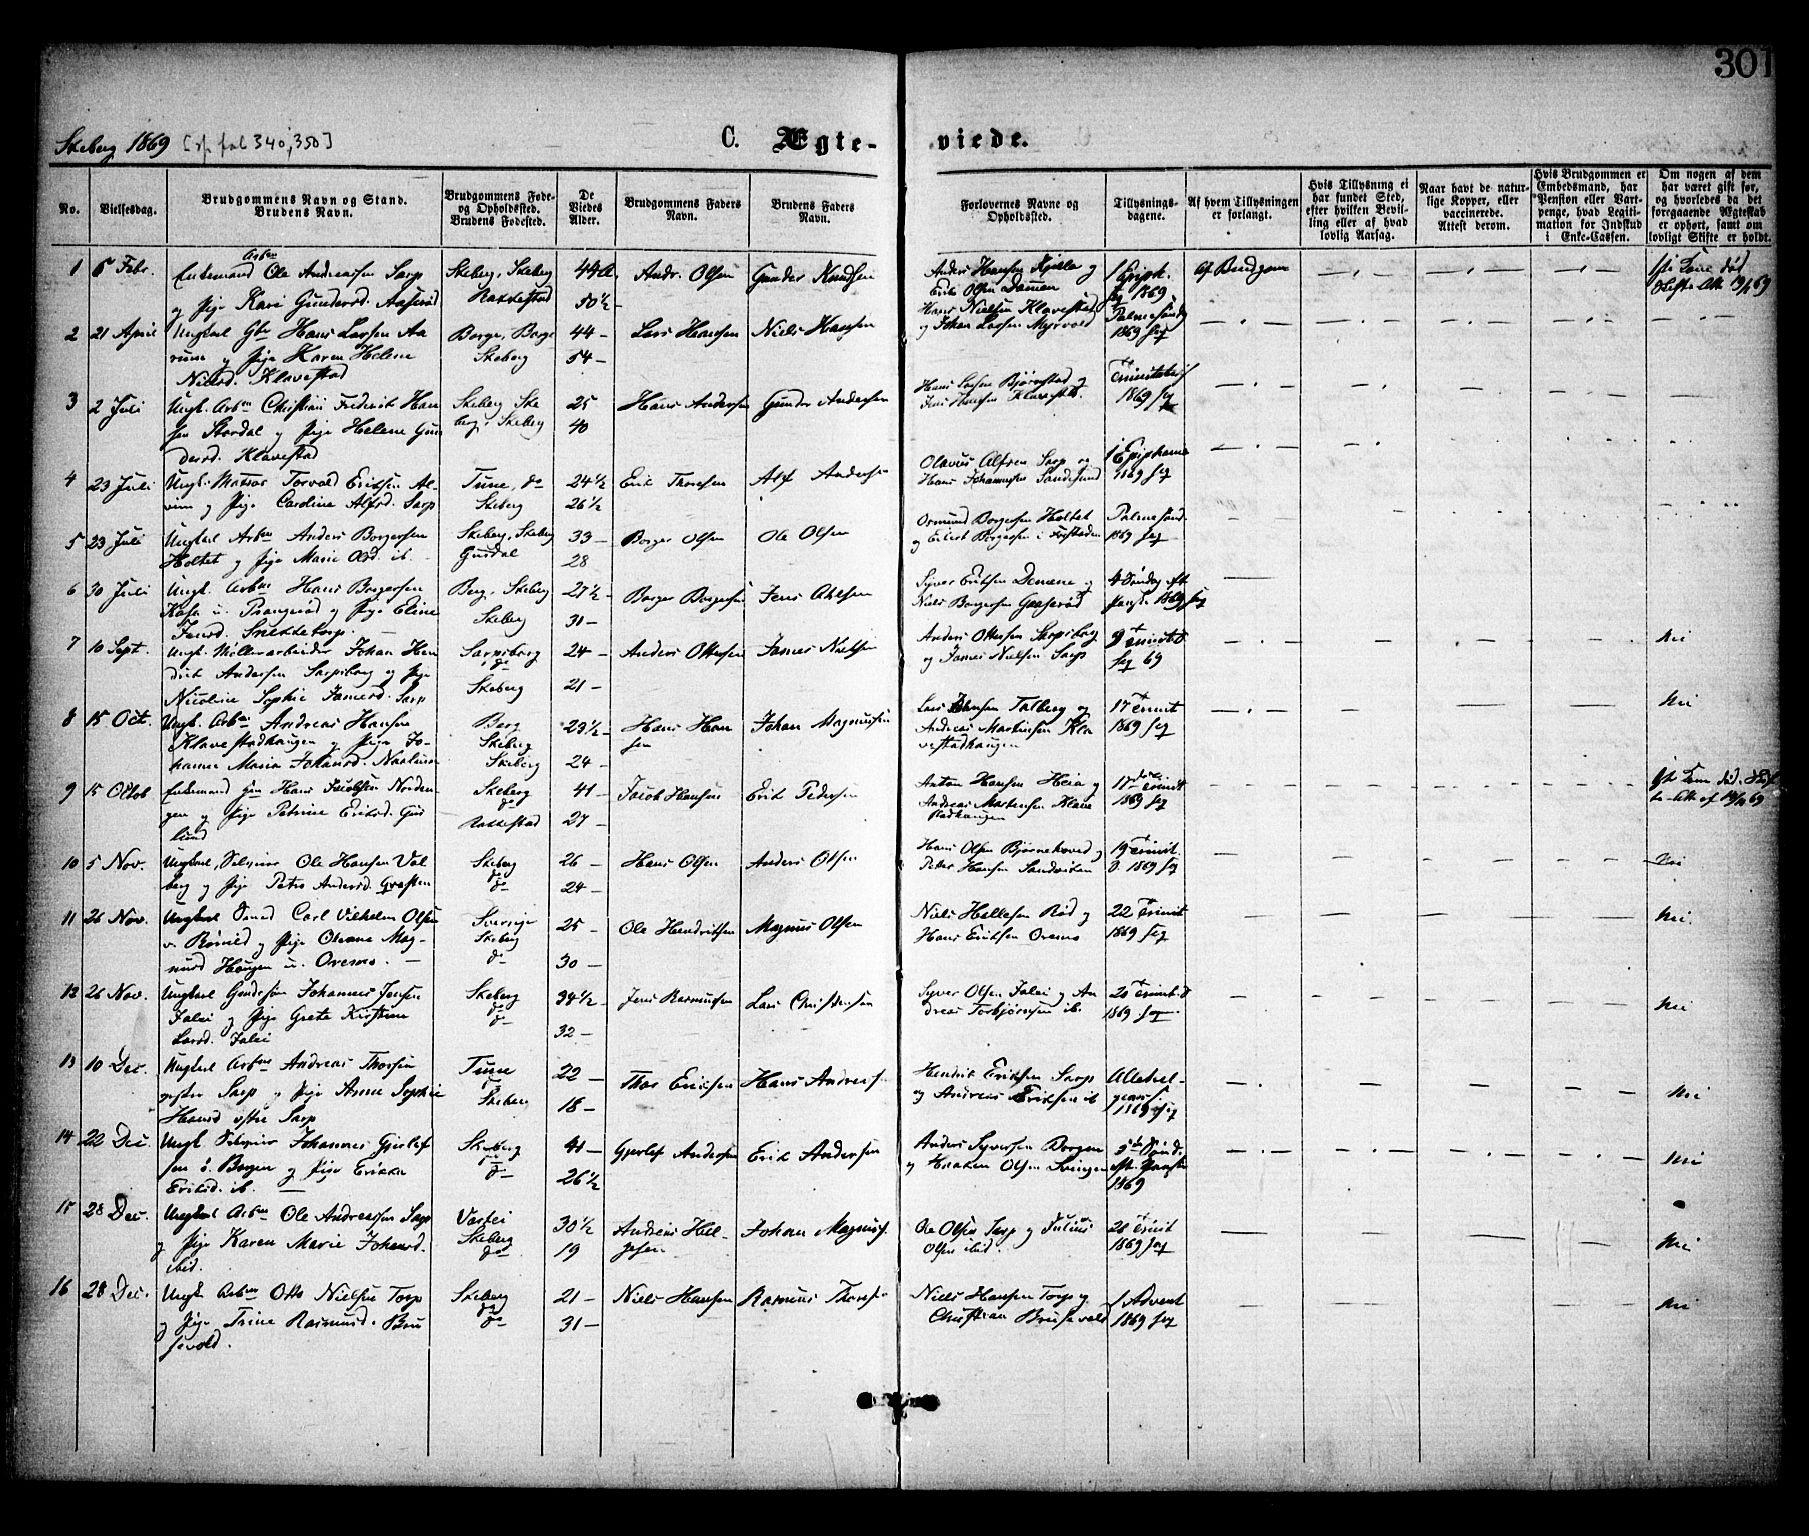 301
Skeberg 1869 [sp. fol 340, 350]
C. Ægte-
viede.
No.
Vielsesdag.
Brudgommens Navn og Stand.
Brudens Navn.
Brudgommens Føde-
og Opholdssted.
Brudens Fødested.
De
Viedes
Alder.
Brudgommens Faders
Navn.
Brudens Faders
Navn.
Forlovernes Navne og
Opholdssted.
Tillysnings-
dagene.
Af hvem Tillysningen
er forlangt.
Hvis Tillysning ei
har fundet Sted,
efter hvilken Bevil-
ling eller af hvad
lovlig Aarsag.
Naar havt de natur-
lige Kopper, eller
vaccinerede.
Attest derom.
Hvis Brudgommen er
Embedsmand, har
Pension eller Vart-
penge, hvad Legiti-
mation for Indskud
i Enke-Cassen.
Om nogen af dem
har været gift før,
og hvorledes da det
forregaaende Ægteskab
er ophørt, samt om
lovligt Skifte er holdt.
1 5 Febr.
Arbm
Enkemand Ole Andreassen Sarp
og Pige Kari Gundersd. Aaserød
Skeberg, Skeberg
Rakkestad
44
50 1/2
Andr. Olsen
Gunder Knudsen
Anders Hansen Kjølle og
Erik Olsen Damen
1 Epiph.
1869
Af Brudgom
1ste Kone død
2 21 April
Ungkarl Gbr Hans Larsen Aa
rum og Pige Karen Helene
Nielsd. Klavestad
Borge, Borge
Skeberg
44
54
Lars Hansen
Niels Hansen
Hans Nielsen Klavestad
og Johan Larsen Myrvold
Palmesønd
1869 seq
3 2 Juli
Ungk. Arbm Christian Frederik Han
sen Stordal og Pige Helene Gun
dersd. Klavestad
Skeberg Ske
berg, Skeberg
25
40
Hans Andersen
Gunder Andersen
Hans Larsen Bjørnstad og
Jens Hansen Klavestad
Trinitatis
1869 seq
4 23 Juli
Ungk. Matros Torvald Eriksen Al-
vim og Pige Caroline Alfsd. Sarp
Tune, do
Skeberg
24 1/2
26 1/2
Erik Thorsen
Alf Andersen
Olavus Alfsen Sarp og
Hans Johannesen Sandesund
1 Epiphania
1869 seq
5 23 Juli
Ungkarl Arbm Anders Borgersen
Holtet og Pige Marie Olsd. ib.
Skeberg, Skeberg
33
28
Borger Olsen
Ole Olsen
Ormund Borgersen Holtet
Palmesønd.
1869 seq
6 30 Juli
Ungk. Arbm Hans Borgersen
og Pige Eline
Jensd. Snekketorp.
Berg, Skeberg
Skeberg
27 1/2
31
Borger Borgersen
Jens Olsen
Syver Eriksen Damene og
Niels Borgersen Graaserød
4 Søndag eft
Paask. 1869 seq
7 10 Sept.
Ungk. Møllerarbeider Johan Hen
drik Andersen Sarpsborg og Pige
Nicoline Sophie Jamesd. Sarp
Sarpsborg
do
Skeberg
24
21
Anders Ottersen
James Nielsen
Anders Ottersen Sarpsborg
og James Nielsen Sarp
9 Trinit
seq 69
Nei
8 15 Oct.
Ungk. Arbm Andreas Hansen
Klavestadhaugen og Pige Jo-
hanne Maria Johansd. Navlum
Berg
Skeberg
Skeberg
23 1/2
24
Hans Han
sen
Johan Magnussen
Lars Johnsen Talberg og
Andreas Martinsen Kla
vestadhaugen
17 Trinit
1869 seq
Nei
9 15 Octob
Enkemand Hans Jacobsen Norden-
gen og Pige Petrine Eriksd. Gud
lund
Skeberg
do
Rakkestad
41
27
Jacob Hansen
Erik Pedersen
Anton Hansen Heia og
Andreas Martinsen Klave
stadhaugen
17de Trinit
1869 seq
1ste Kone død.
10 5 Nov.
Ungkarl, Selveier Ole Hansen Val
berg og Pige Petra Andersd. Graften
Skeberg
do
do
26
24
Hans Olsen
Anders Olsen
Hans Olsen Bjørnehoved og
Peter Hansen Sandviken
19 Trinit.
1869 seq
Nei
11 26 Nov.
Ungkarl Smed Carl Vilhelm Olsen
og Pige Oleane Mag-
nusd Haugen u. Oremo.
Sverrige
Skeberg
do
25
30
Ole Hendriksen
Magnus Olsen
Niels Hellesen Rød og
Hans Eriksen Oremo
22 Trinit
1869 seq
Nei
12 26 Nov.
Ungkarl Gaardejer Johannes Jensen
Jalei og Pige Grete Kirstine
Larsd. Jalei
Skeberg
do
do
34 1/2
32
Jens Rasmussen
Lars Christensen
Syver Olsen Jalei og An
dreas Torbjørnsen ib.
20 Trinit.
1869 seq
Nei
13 10 Dec.
Ungkarl Arbm Andreas Thorsen
Sarp og Pige Anne Sophie
Hansd østre Sarp
Tune
do
Skeberg
22
18
Thor Eriksen
Hans Andersen
Hendrik Eriksen Sarp
og Andreas Eriksen ib
Allehel-
gensf.
1869 seq
Nei
14 22 Dec.
Ungk. Selveier Johannes Gjerlef
sen i Borgen og Pige Erikka
Eriksd. ib.
Skeberg
do
do
41
26 1/2
Gjerlef Andersen
Erik Andersen
Anders Syversen Borgen
og Haaken Olsen Svingen
5te Sønd.
eft. Paaske
1869
Nei
15 28 Dec.
Ungkarl Arbm Ole Andreassen Sarp
og Pige Karen Marie Johansd.
ibid.
Skeberg
do
30 1/2
19
Andreas Hel-
gesen
Johan Magnus.
Ole Olsen Sarp og Julius
Olsen ibid.
1869 seq
Nei
16 28 Dec.
Ungk Arbm Otto Nielsen Torp
og Pige Trine Rasmusd. Bru
sevold.
Skeberg
do
do
21
31
Niels Hansen
Rasmus Thorsen
Niels Hansen Torp og
Christian Brusevold
1 Advent
1869 seq
Nei